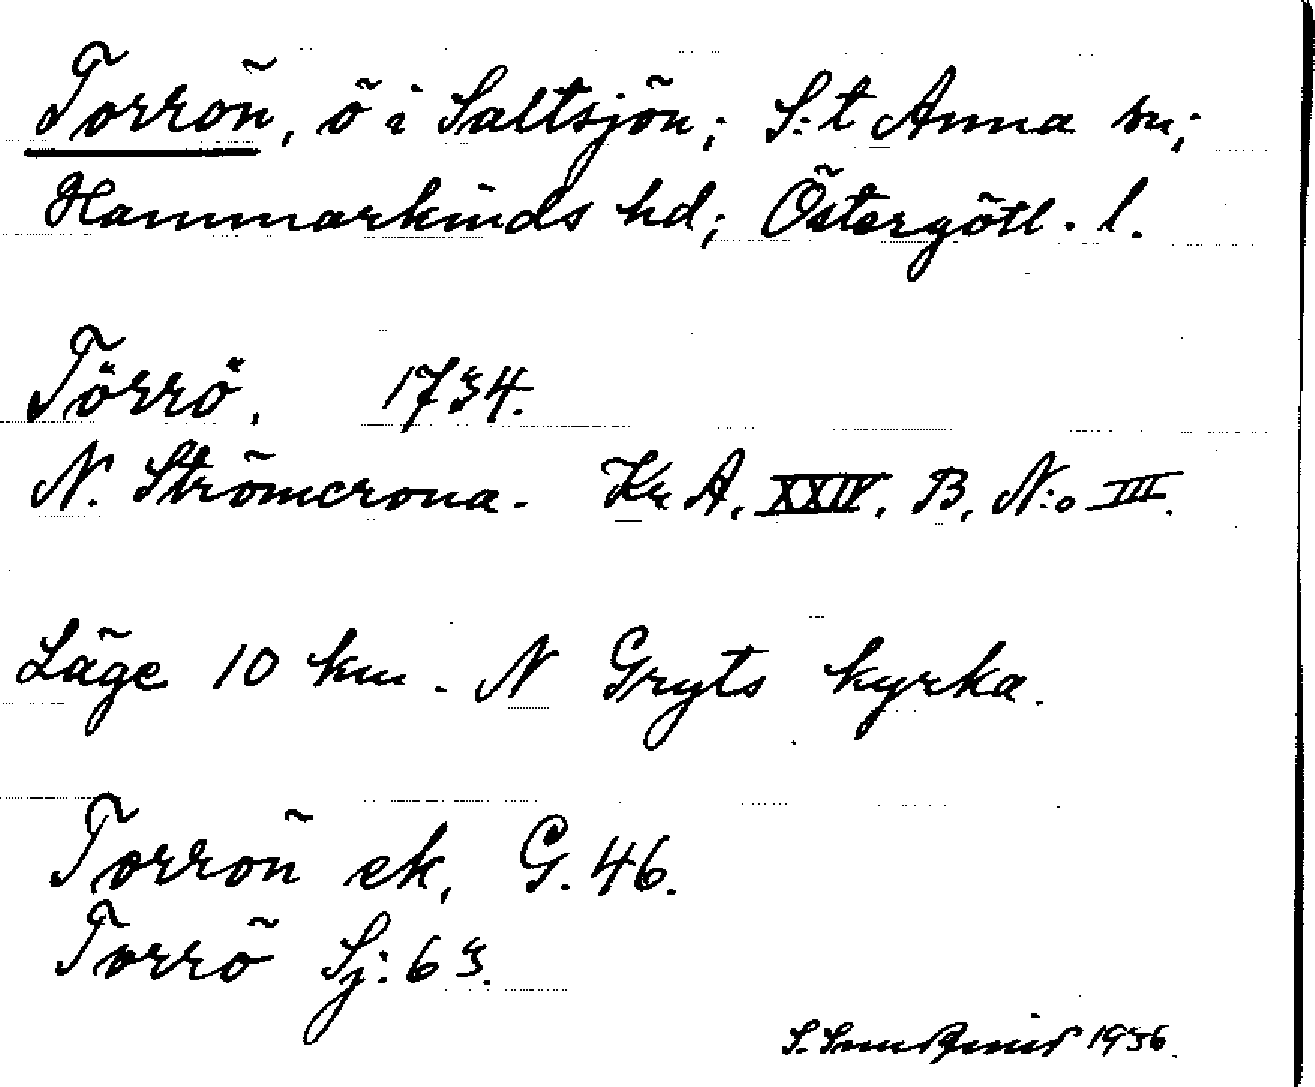 Torrön, ö i Saltsjön; S:t Anna sn;
Hammarkinds hd; Östergötl. l.
Törrö, 1734.
N. Strömcrona. Kr A, XXIV, B, N:o III.
Läge 10 km. N Gryts kyrka.
Torrön ek, G. 46.
Torrö Sj: 63.
S. 1936.